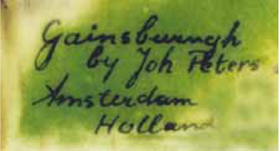 Gainsburugh
by Joh Peters
Amsterdam
Holland